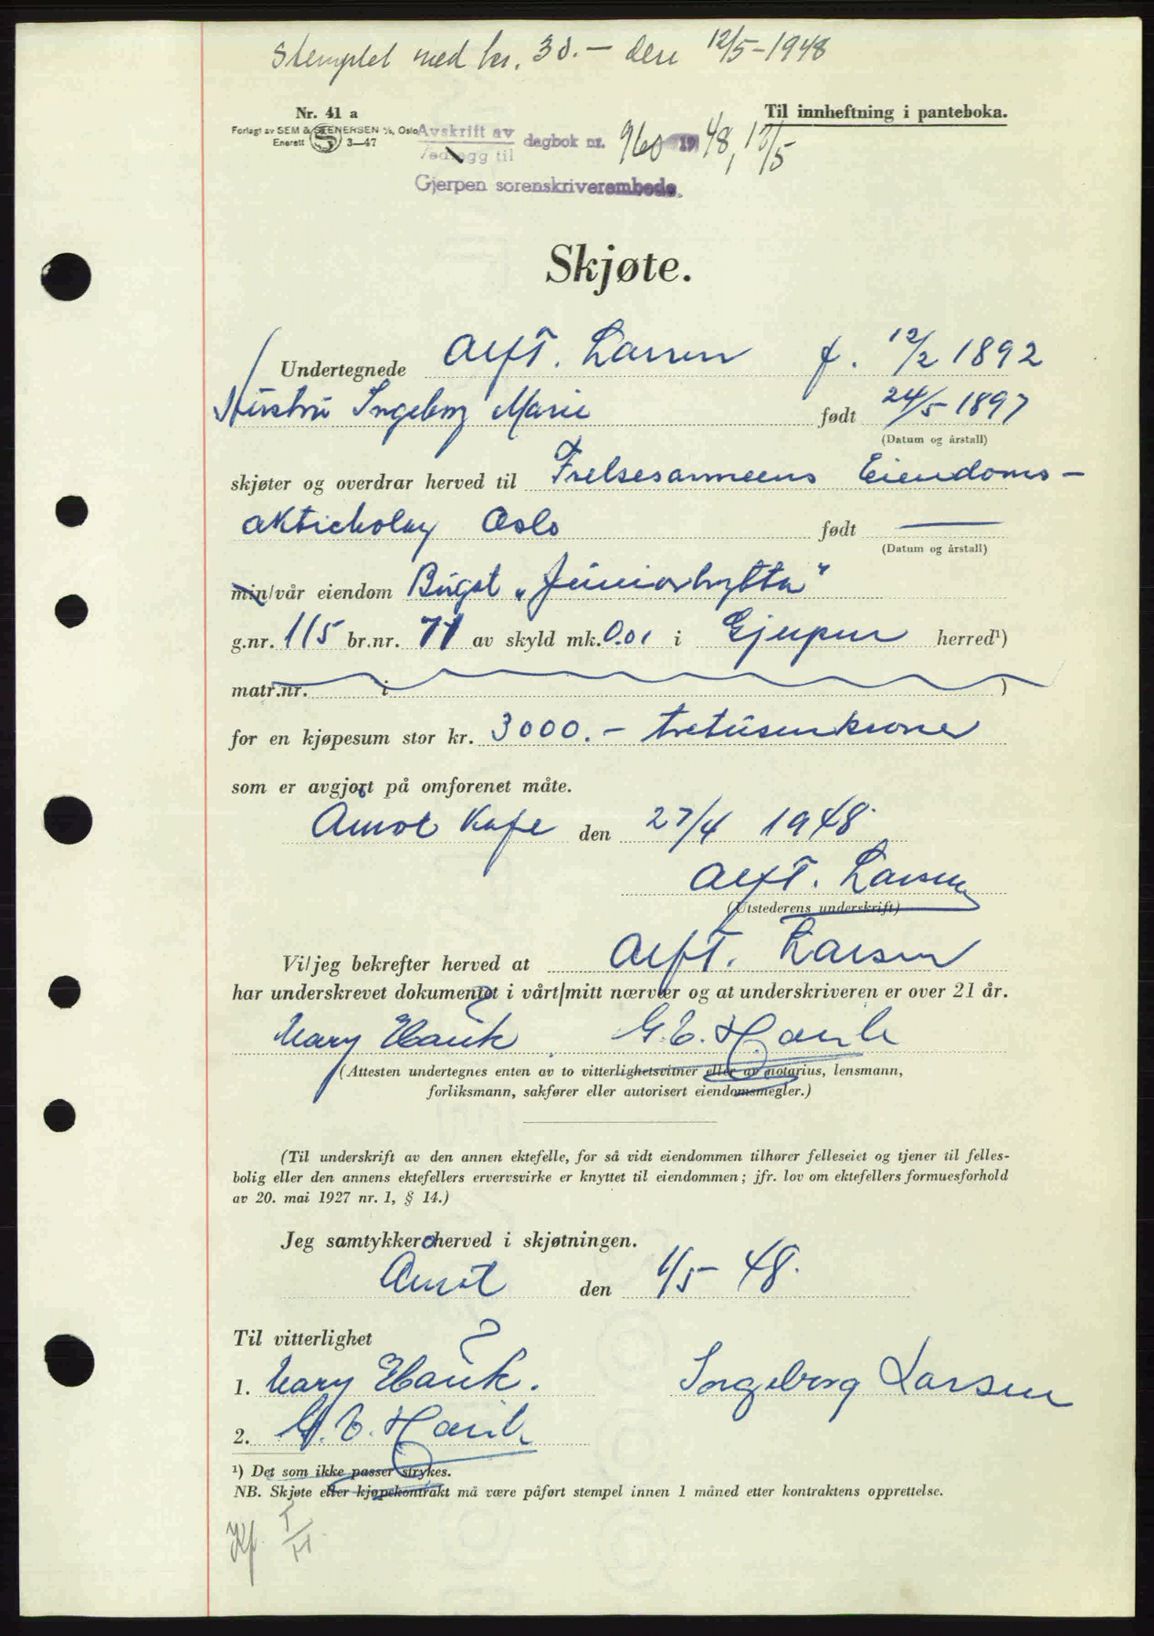 Stemplet med kr. 30.— den 12/5-1948
Nr. 41 a
Til innheftning i panteboka.
Forlagt av SEM & STENERSEN A/S, Oslo
Enerett 3—47
Avskrift av
Vedlegg til
dagbok nr. 960 1948, 12/5
Gjerpen sorenskriverembede.
Skjøte.
Undertegnede Alf T. Larsen f. 12/2 1892
Hustru Ingeborg Marie født 24/5-1897
(Datum og årstall)
skjøter og overdrar herved til Frelsesarmeens Eiendoms-
aktiebolag Oslo født —
(Datum og årstall)
min/vår eiendom Bugst „Juniorhytta"
g.nr. 115 br.nr. 71 av skyld mk. 0.01 i Gjerpen herred¹)
matr.nr. i )
for en kjøpesum stor kr. 3000.- tretusenkroner
som er avgjort på omforenet måte.
den 27/4 1948.
Alf T. Larsen
(Utstederens underskrift)
Vi/jeg bekrefter herved at Alf T. Larsen
har underskrevet dokumentet i vårt/mitt nærvær og at underskriveren er over 21 år.
Mary Hauk G. E. Hauk
(Attesten undertegnes enten av to vitterlighetsvitner eller av notarius, lensmann,
forliksmann, sakfører eller autorisert eiendomsmegler.)
(Til underskrift av den annen ektefelle, for så vidt eiendommen tilhører felleseiet og tjener til felles-
bolig eller den annens ektefellers ervervsvirke er knyttet til eiendommen; jfr. lov om ektefellers formuesforhold
av 20. mai 1927 nr. 1, § 14.)
Jeg samtykker herved i skjøtningen.
Åmot den 1/5- 48.
Til vitterlighet
1. Mary Hauk.
Ingeborg Larsen
2. G. E. Hauk
¹) Det som ikke passer strykes.
NB. Skjøte eller kjøpekontrakt må være påført stempel innen 1 måned etter kontraktens opprettelse.